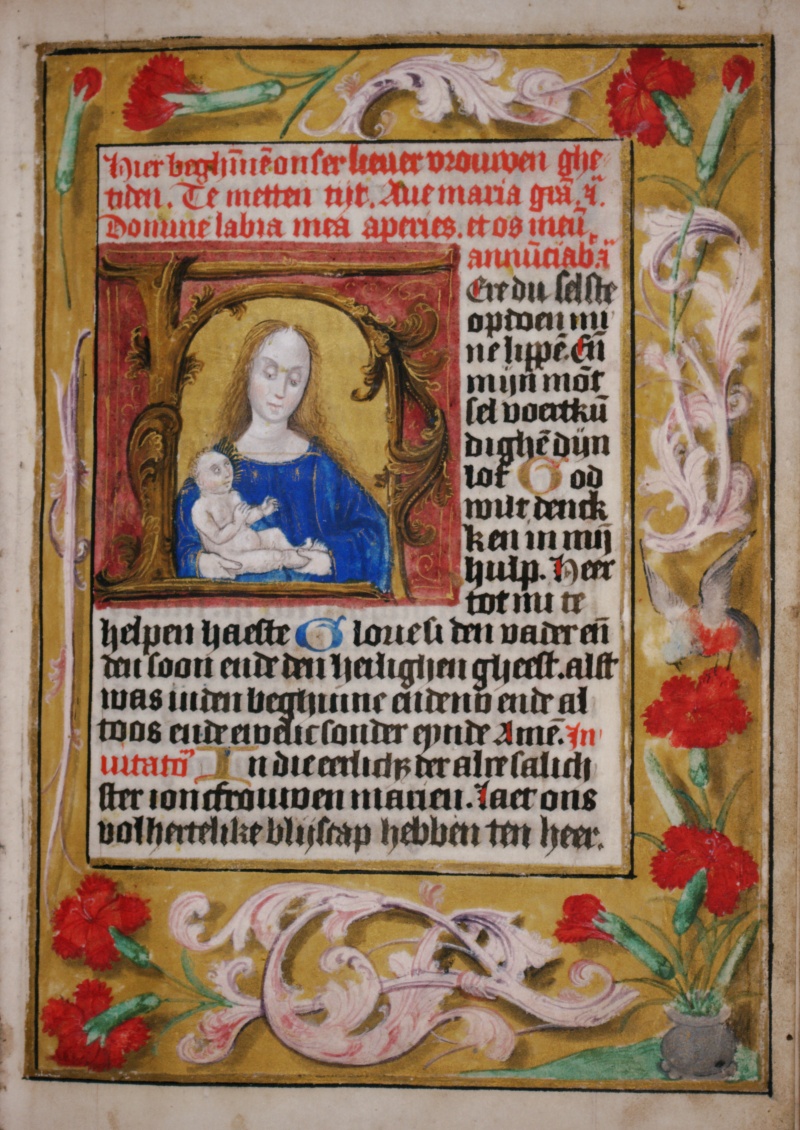 Hier beghīnē onser lieuer vrouwen ghe
tiden. Te metten tijt. Aue maria grā. ā.
Domine labia mea aperies. et os meū
annūciabā
Ere du selste
opdoen mi
ne lippē. Eñ
mijn mōt
sel voertkū
dighē dijn
lof God
wilt denck
ken in mij
hulp. Heer
tot mi te
helpen haeste Glorie si den vader eñ
den soon ende den heilighen gheest. alst
was inden beghinne ende nv ende al
toos ende ewelic sonder eynde Amē. In
uitatō In die eerlichz der alre salich
ster ioncfrouwen marien. Laet ons
volhertelike blijscap hebben ten heer.